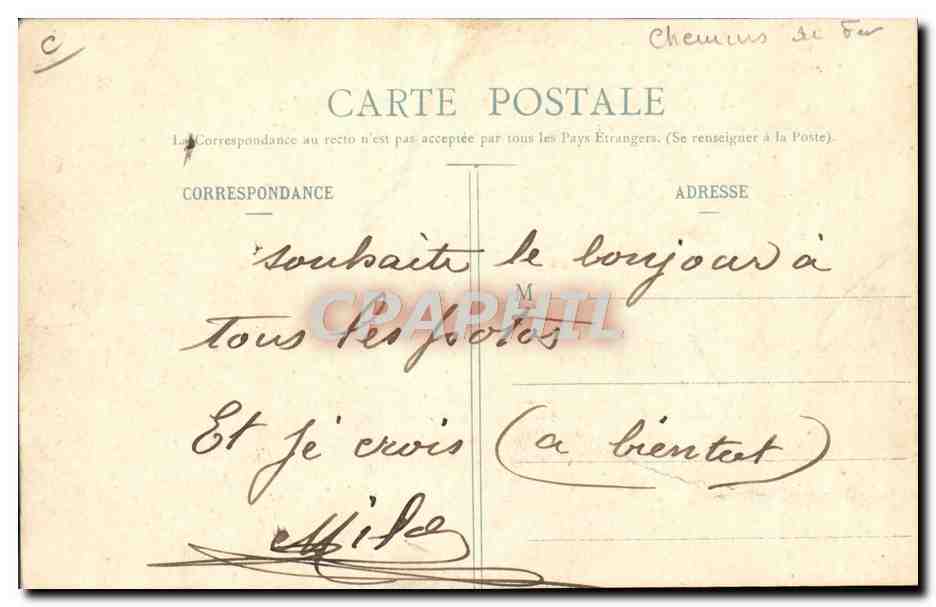 c
Chemins de Fer
CARTE POSTALE
La Correspondance au recto n'est pas acceptée par tous les Pays Étrangers. (Se renseigner à la Poste).
CORRESPONDANCE
ADRESSE
souhaite le bonjour à
M
CPAPHIL
tous les potos
Et je crois (a bientot)